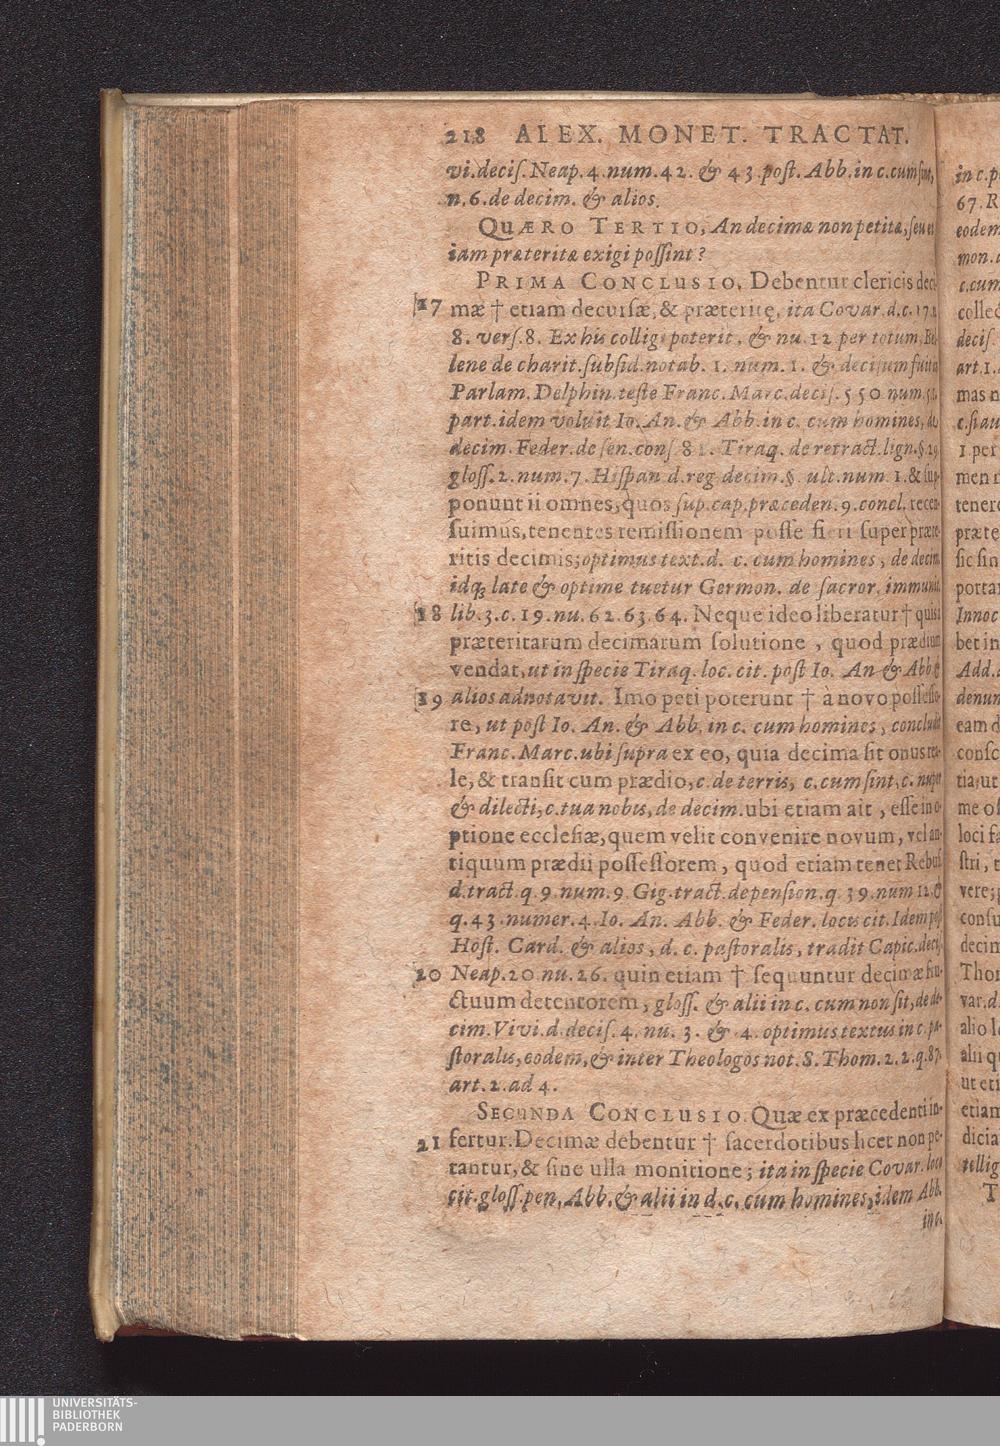 218 ALEX. MONET. TRACTAT.
vi.decis.Neap.4.num.42. & 43.post. Abb.in c.cum sint,
n.6.de decim. & alios.
QUÆRO TERTIO, An decimæ non petitæ, seu et
iam præteritæ exigi possint?
PRIMA CONCLUSIO. Debentur clericis deci
17 mæ † etiam decursæ, & præteritę, ita Covar.d.c.17.
8. vers.8. Ex his colligi poterit. & nu.12 per totum,
lene de charit.subsid.notab. 1. num.1. & decisum fuit
Parlam.Delphin.teste Franc.Marc.decis.550.num.
part.idem voluit Io.An.& Abb.in c. cum homines, de
decim.Feder.de sen.cons.81. Tiraq.de retract.lign.§.
gloss.2.num.7.Hispan d.reg decim.§. ult.num 1.& sup
ponunt ii omnes, quos sup.cap.præceden.9.concl.recen
suimus, tenentes remissionem posse fieri super præte-
ritis decimis; optimus text.d. c. cum homines, de decim.
idq; late & optime tuetur Germon. de sacror. immunit.
18 lib.3.c.19.nu.62.63.64. Neque ideo liberatur † quis
præteritarum decimarum solutione, quod prædium
vendat, ut in specie Tiraq.loc.cit.post Io. An & Abb.&
19 alios adnotavit. Imo peti poterunt † à novo possesso-
re, ut post Io. An. & Abb. in c. cum homines, concludit
Franc.Marc.ubi supra ex eo, quia decima sit onus rea-
le, & transit cum prædio, c.de terris, c.cum sint, c.nuper
& dilecti, c.tua nobis, de decim.ubi etiam ait, esse in o-
ptione ecclesiæ, quem velit convenire novum, vel an-
tiquum prædii possessorem, quod etiam tenet Rebuf.
d.tract.q.9.num.9.Gig.tract.de pension.q.39.num 12.&
q.43.numer.4.Io. An. Abb. & Feder. locis cit. Idem post
Host. Card. & alios, d. c. pastoralis, tradit Capic.decis.
20 Neap.20.nu.26. quin etiam † sequuntur decimæ fru-
ctuum detentorem, gloss. & alii in c. cum non sit, de de-
cim.Vivi.d.decis.4.nu.3. & 4. optimus textus in c.pa-
storalis, eodem, & inter Theologos not.S.Thom.2.2.q.87.
art.2.ad 4.
SECUNDA CONCLUSIO. Quæ ex præcedenti in-
21 fertur. Decimæ debentur † sacerdotibus licet non pe-
tantur, & sine ulla monitione; ita in specie Covar. loco
cit.gloss.pen, Abb.& alii in d.c. cum homines, idem Abb.
in c.
in c.p
67.R
eodem
mon.
c.cum
collec
decis.
art.1.
mas n
c.stau
1.per
men
tener
præte
sic sin
porta
Innoc
bet in
Add.
denun
eam d
consc
tia, ut
me of
loci fa
stri,
vere;
consu
decim
Tho
var.d.
alio l
alii q
ut eti
etiam
dicia
tellig
T
UNIVERSITÄTS-
BIBLIOTHEK
PADERBORN